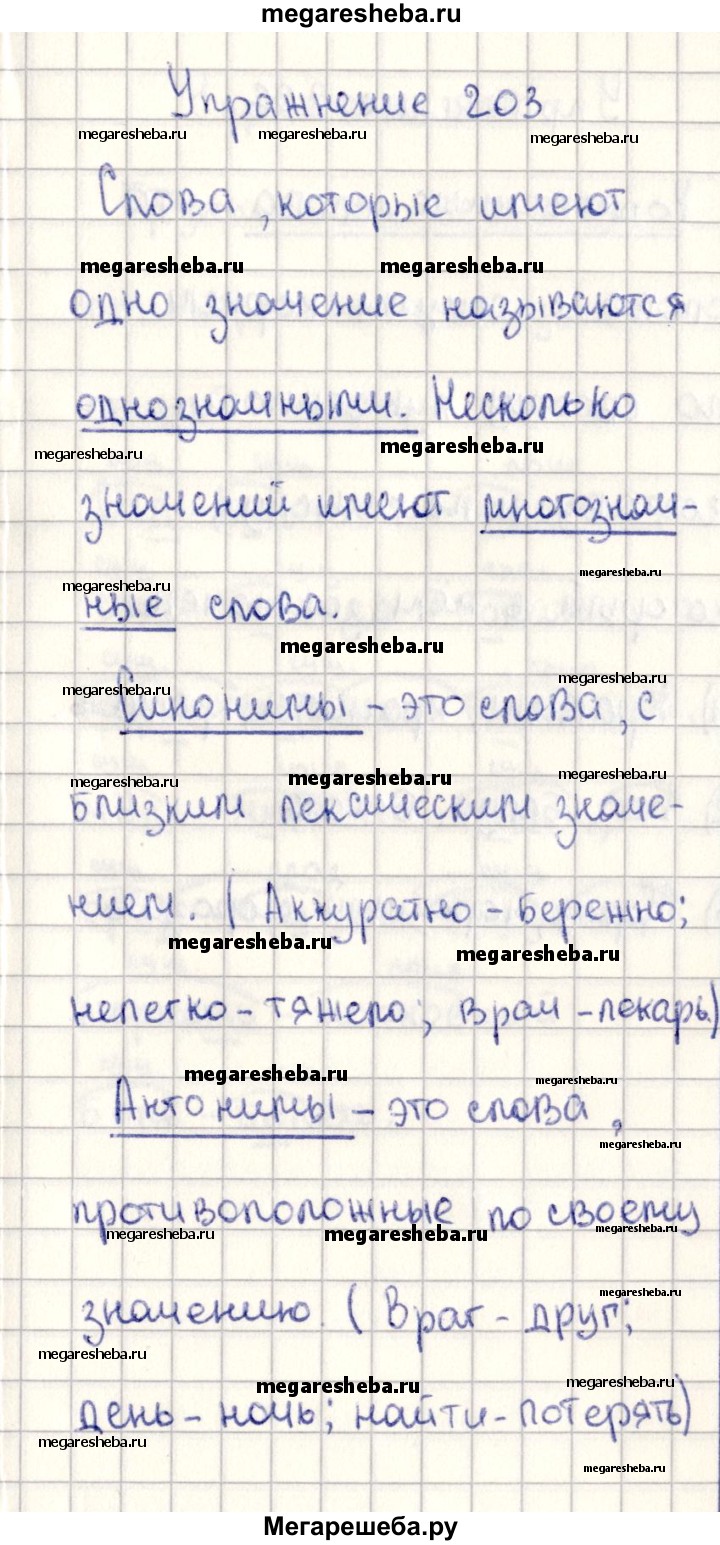 megaresheba.ru
Упражнение 203
megaresheba.ru megaresheba.ru megaresheba.ru
Слова, которые имеют
megaresheba.ru megaresheba.ru
одно значение называются
однозначными. Несколько
megaresheba.ru megaresheba.ru
значений имеют многознач-
megaresheba.ru megaresheba.ru
ные слова.
megaresheba.ru
megaresheba.ru megaresheba.ru
Синонимы - это слова, с
megaresheba.ru megaresheba.ru megaresheba.ru
близким лексическим значе-
нием. (Аккуратно - бережно;
megaresheba.ru megaresheba.ru
нелегко - тяжело; врач - лекарь)
megaresheba.ru megaresheba.ru
Антонимы - это слова,
megaresheba.ru
противоположные по своему
megaresheba.ru megaresheba.ru megaresheba.ru
megaresheba.ru
значению. (Враг - друг;
megaresheba.ru
megaresheba.ru megaresheba.ru
день - ночь; найти - потерять)
megaresheba.ru
megaresheba.ru
Мегарешеба.ру